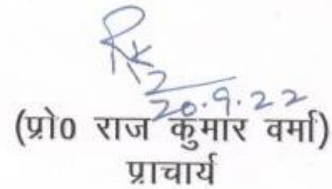 20.9.22
(प्रो0 राज कुमार वर्मा)
प्राचार्य